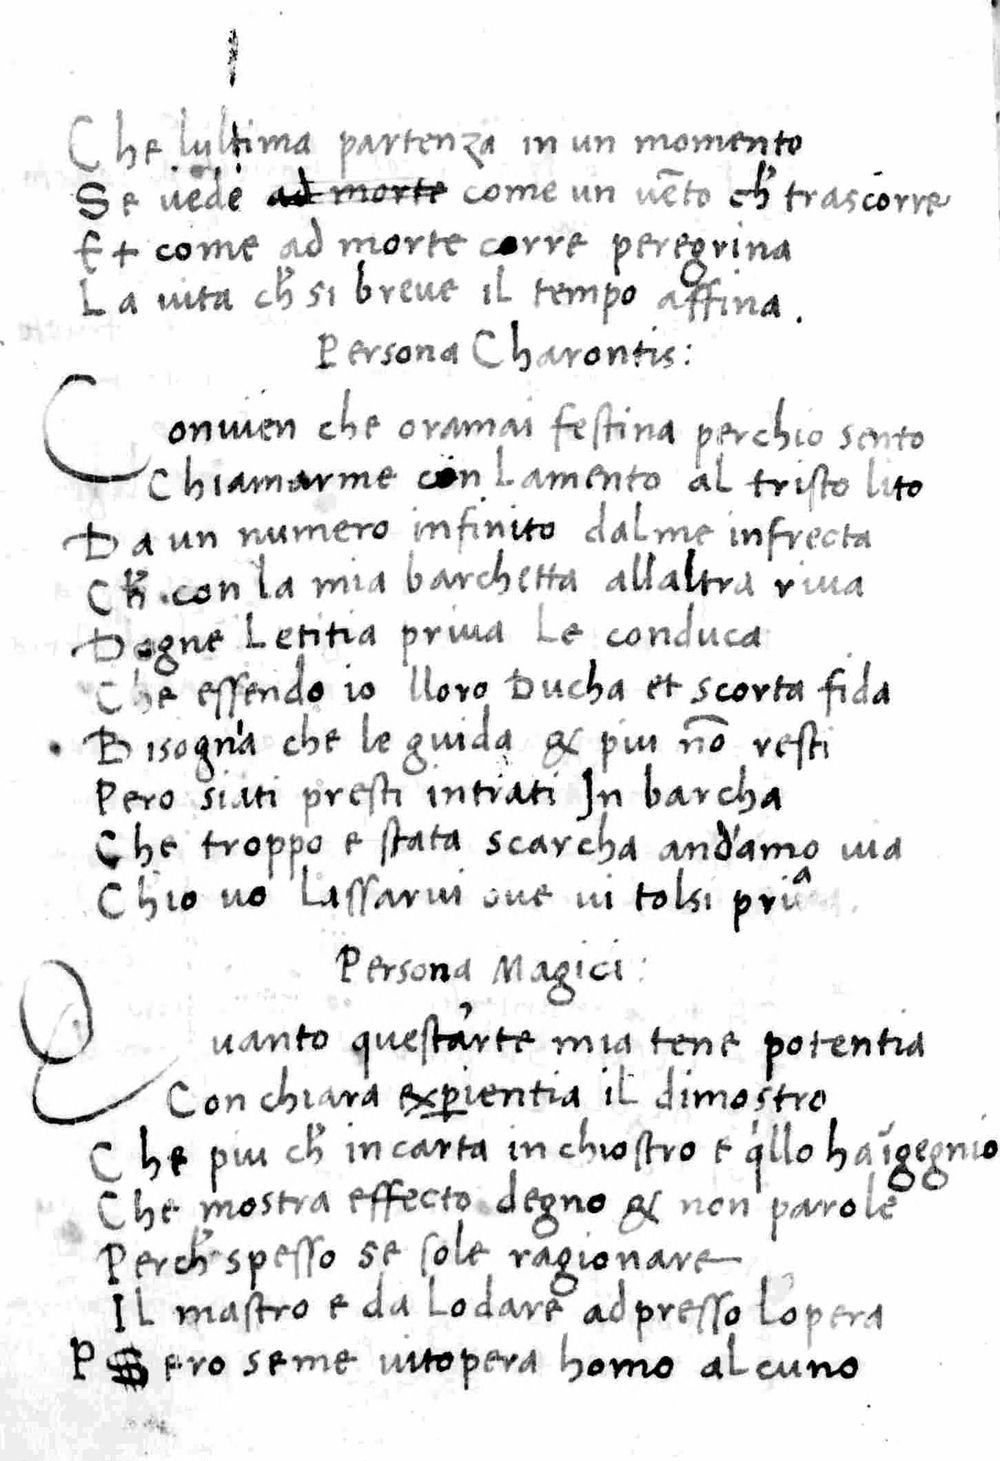 Che lultima partenza in un momento
Se uede ad morte come un uēto ch' trascorre
Et come ad morte corre peregrina
La uita ch' si breue il tempo affina.
Persona Charontis:
Conuien che oramai festina perchio sento
Chiamarme con Lamento al tristo lito
Da un numero infinito dalme infrecta
Ch' con la mia barchetta allaltra riua
Dogne Letitia priua Le conduca
Che essendo io lloro Ducha et scorta fida
Bisogn'a che le guida & piu nō resti
Pero siati presti intrati In barcha
Che troppo e stata scarcha and'amo uia
Chio uo Lassarui oue ui tolsi priᵃ
Persona Magici:
Quanto quest'arte mia tene potentia
Con chiara exp̱ientia il dimostro
Che piu ch' in carta in chiostro e q'llo ha īgegnio
Che mostra effecto degno & non parole
Perch' spesso se sole ragionare
Il mastro e da Lodare adpresso L'opera
Pero seme uitopera homo alcuno